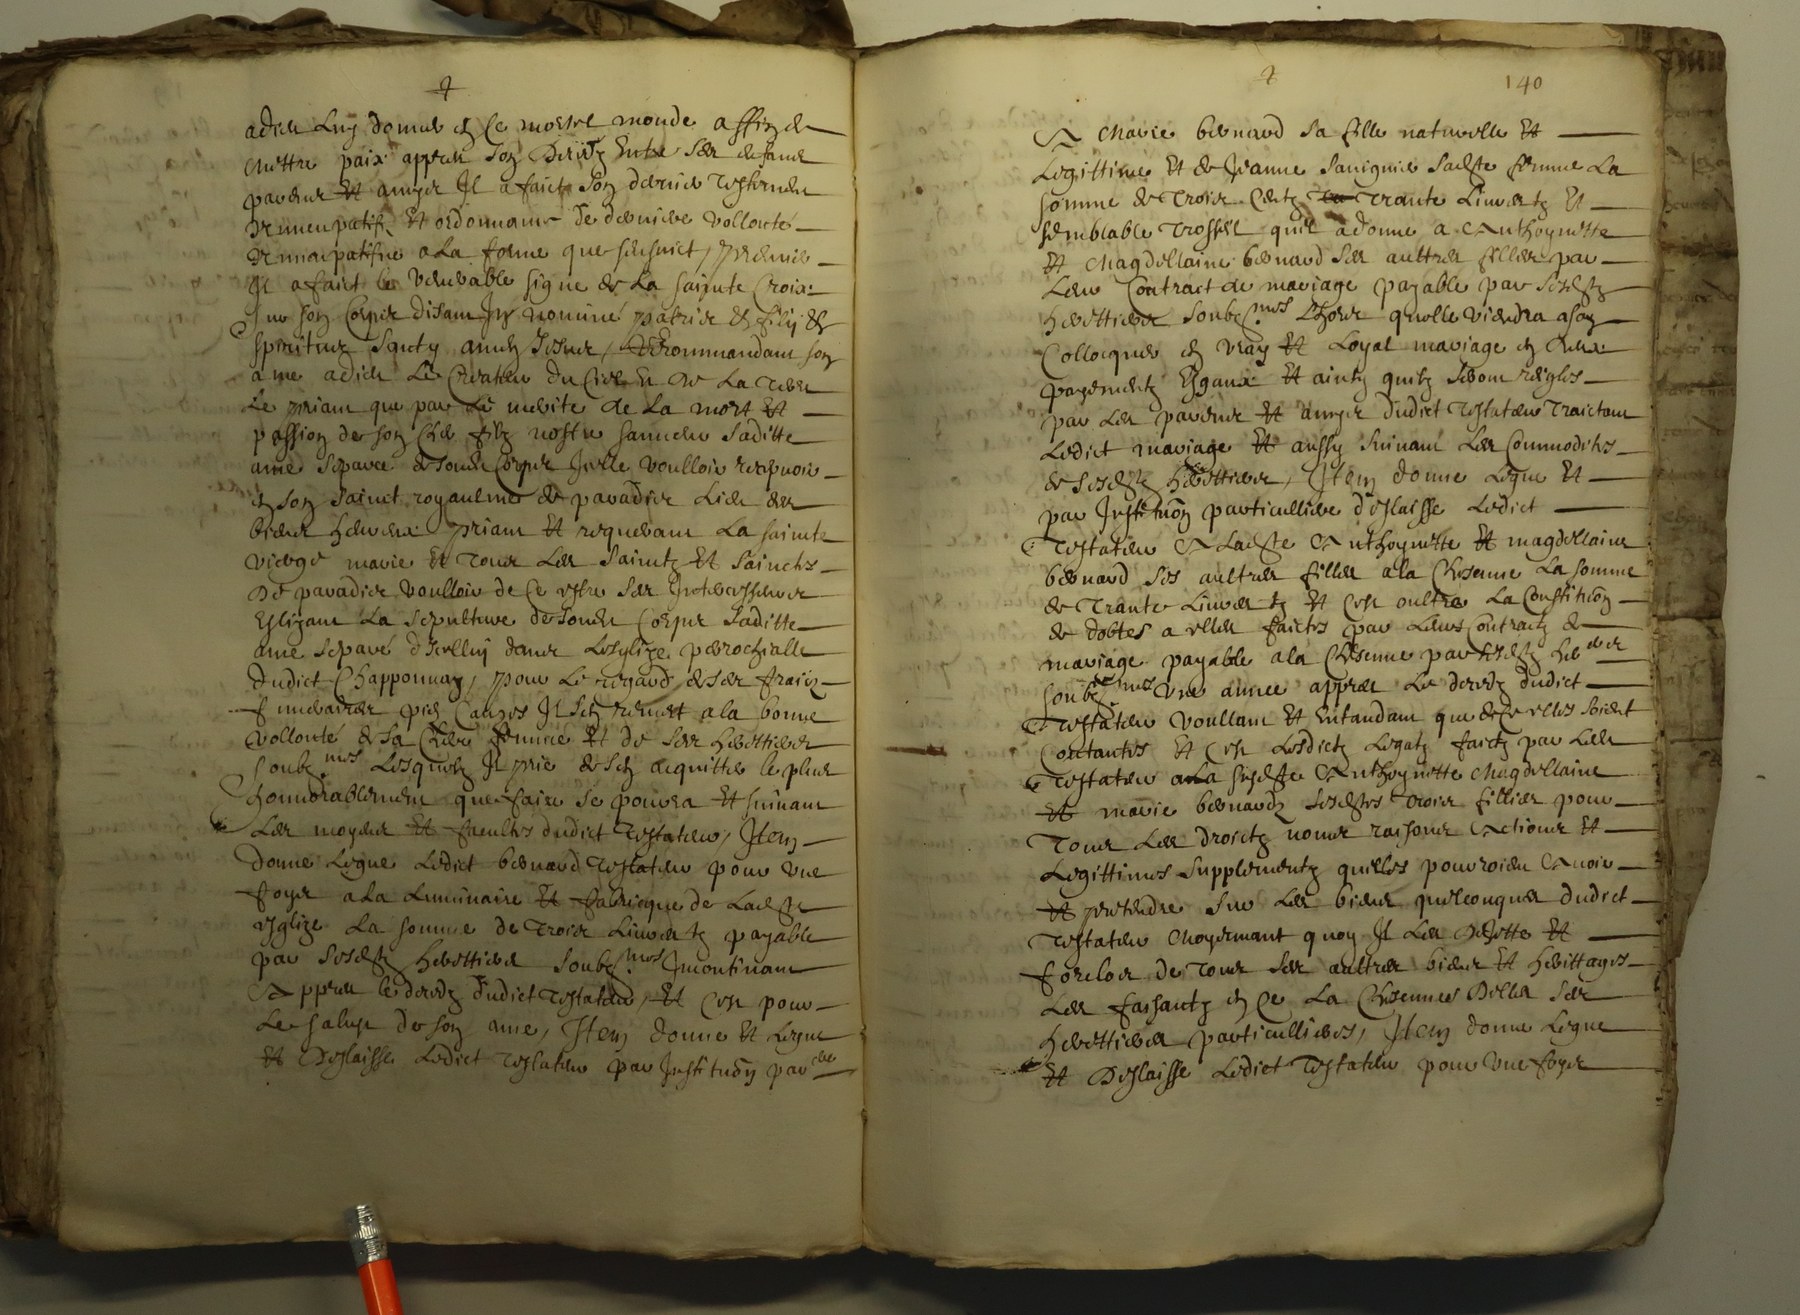 a dieu luy donner en ce mortel monde affin de
mettre paix appres son decedz entre ses enfans
parens et amys Il a faict son dernier testament
nuncupatif et ordonnance de derniere vollonté
nuncupatifve a la forme que sensuict, premier
Il a faict le venerable signe de la sainte Croix
sur son Corps disant In nomine patris et filij et
spiritus sancty amen Jesus, Recommandant son
ame a dieu le Createur du Ciel et de la terre
le priant que par le merite de la mort et
passion de son cher filz nostre sauveur saditte
ame separee de sondit Corps Icelle voulloir recepvoir
en son sainct royaulme de paradis lieu des
biens heureux priant et requerant la sainte
vierge marie et tous les saintz et sainctes
de paradis voulloir de ce estre ses Intercesseurs
Eslizant la sepulture de sondit Corps saditte
ame separé dicelluy dans lesglize parochialle
dudict Chapponnay, pour le regard de ses fraiz
funeraires pies causes Il sen remet a la bonne
vollonté de sa chere femme et de ses herettiers
soubz nés lesquelz Il prie de sen acquitter le plus
honnorablement que faire se pourra et suivant
les moyens et facultes dudict testateur, Item
donne legue ledict bernard testateur pour une
foys a la luminaire et fabricque de ladite
esglize la somme de trois livres tz payable
par sesdits herettiers soubz nés Incontinant
Appres le decedz dudict testateur, Et cest pour
le salut de son ame, Item donne et legue
et deslaisse ledict testateur par Institution parere
140
A Marie bernard sa fille naturelle et
legittime et de Jeanne Savignier sadite femme la
somme de trois centz trante livres tz et
semblable trossel quil a donne a Anthoynette
et Magdellaine bernard ses aultres filles par
leur Contract de mariage payable par sesdits
herettiers soubz nés lhors quelle viendra a soy
Collocquer en vray et loyal mariage en deux
payements esgaux et aintz quilz seront regles
par les parens et amys dudict testateur traictant
ledict mariage et aussy suivant les commodites
de sesdits herettiers, Item donne legue et
par Institution particulliere deslaisse ledict
testateur A ladite Anthoynette et magdellaine
bernard ses aultres filles a la chescune la somme
de trante livres tz et cest oultre la Constitution
de dobtes a elles faictes par leurs contractz de
mariage payable a la chescune par sesdits herers
soubz nés une annee appres le decedz dudict
testateur voullant et entandant que dicelles soient
contantes et cest lesdictz legatz faictz par ledit
testateur a la susdite Anthoynette Magdellaine
et marie bernardz sesdites trois filles pour
tous les droictz noms raisons actions et
legittimes supplementz quelles pourroient avoir
et pretendre sur les biens quelconques dudict
testateur moyennant quoy Il les dejette et
forclos de tous ses aultres biens et herittages
les faisantz en ce la chescunes delles ses
herettieres particullieres, Item donne legue
et deslaisse ledict testateur pour une foys